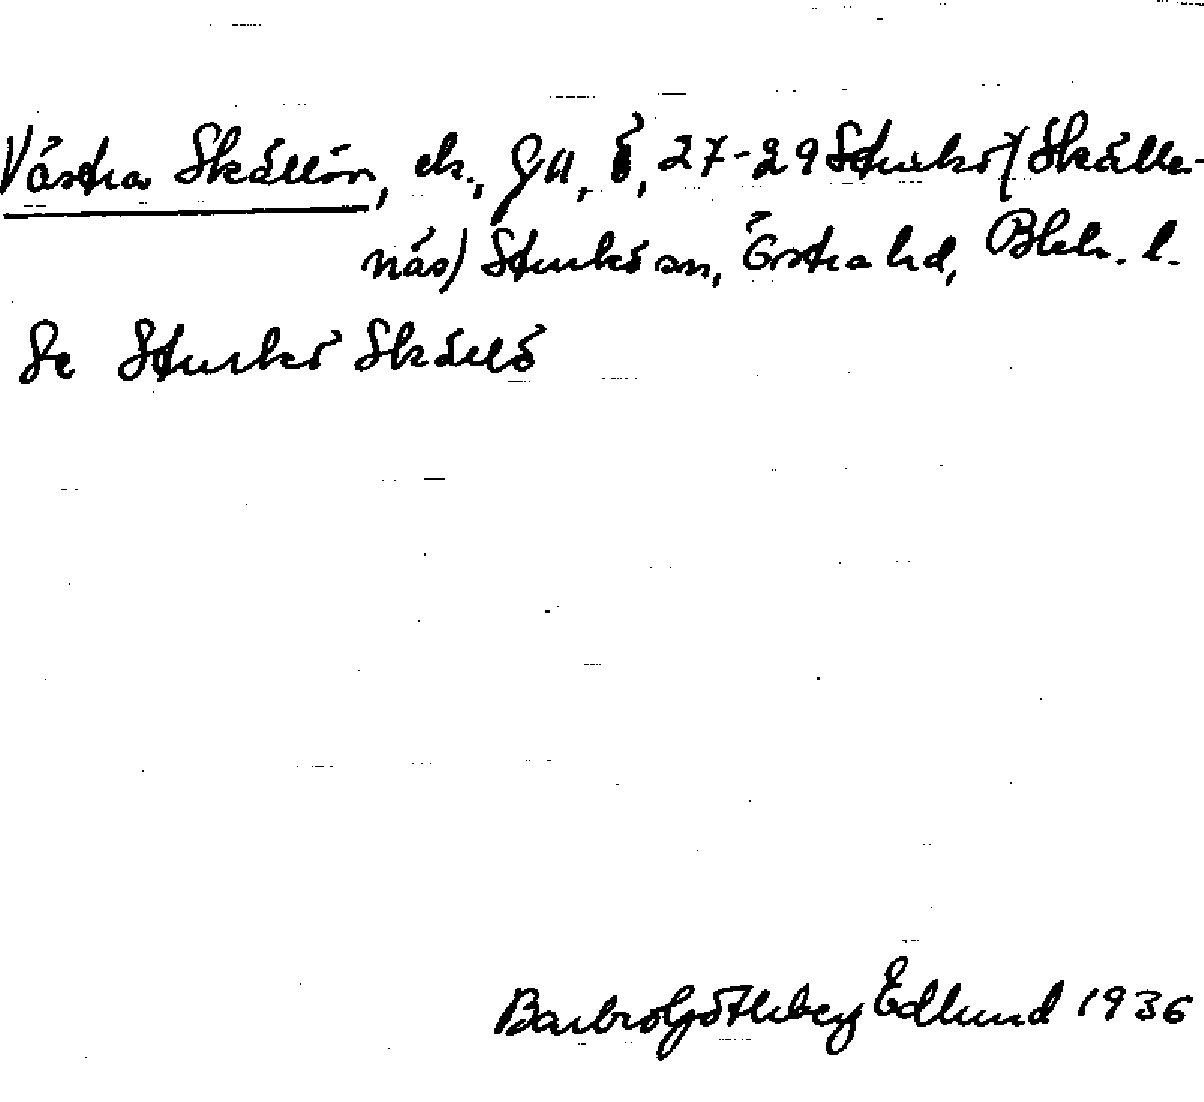 Västra Skällön, ek., GU, Ö, 27-29 Sturkö (Skälle-
näs) Sturkö sn, Östra hd, Blek. l.
Se Sturkö Skällö
Barbro Götheberg Edlund 1936